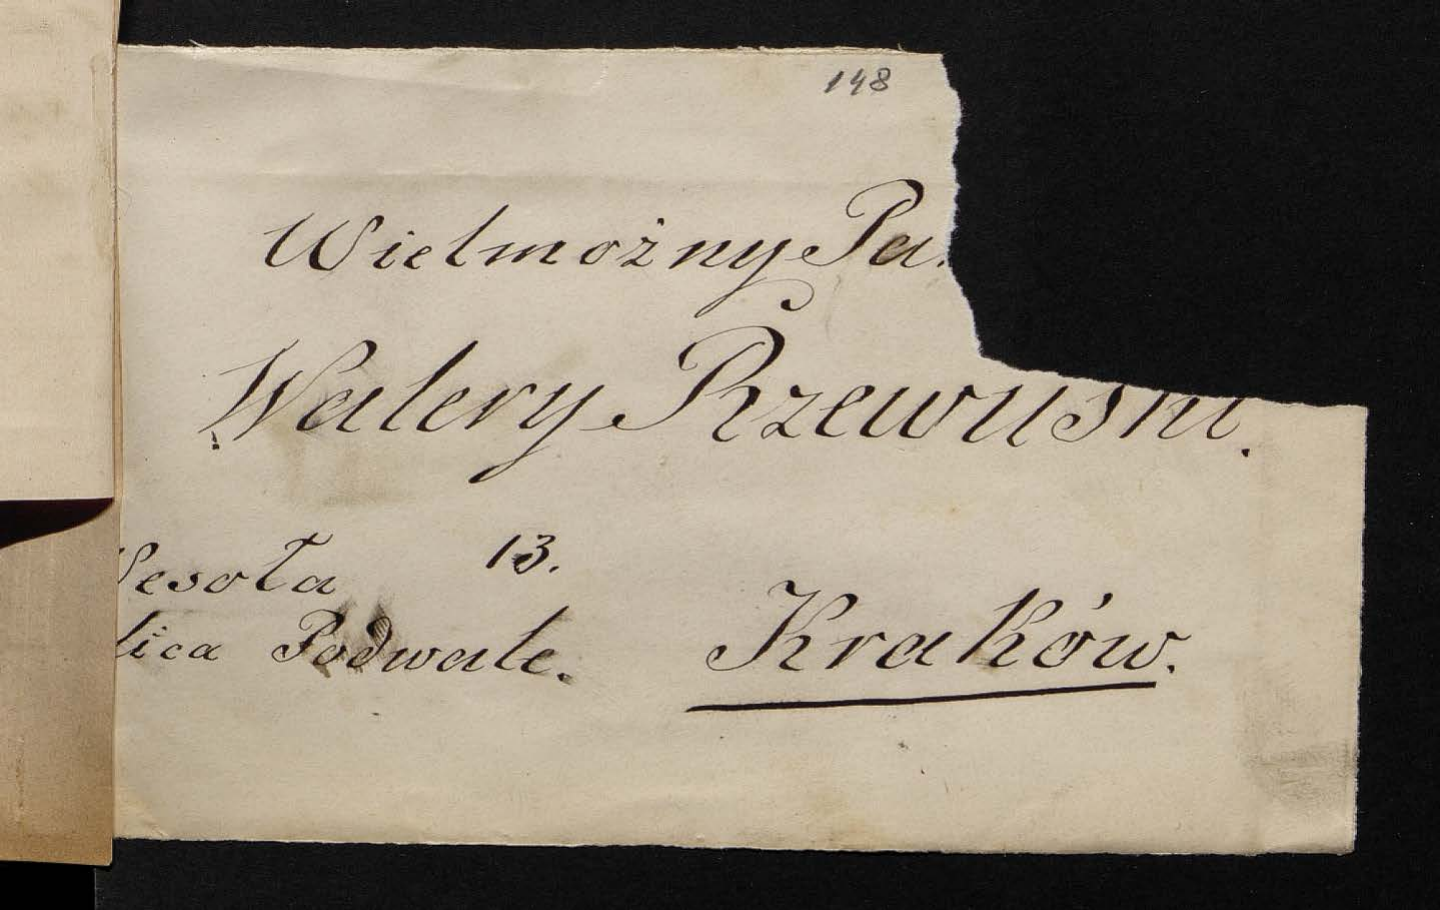 148
Wielmożny Pa
Walery Rzewuski.
Wesoła 13.
lica Podwale.
Kraków.